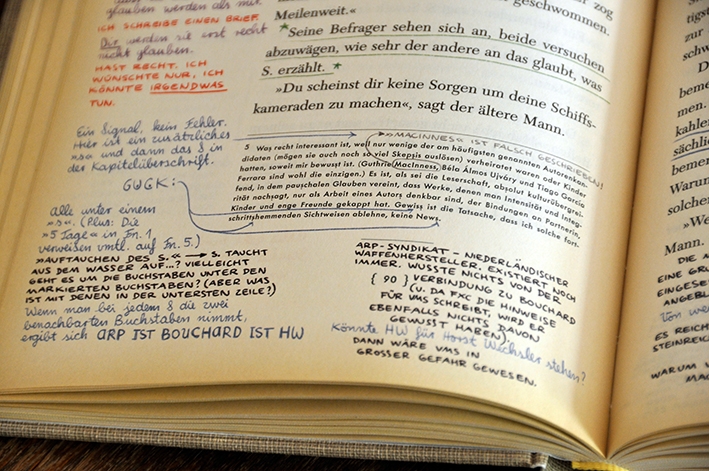 glauben werden als mir.
ICH SCHREIBE EINEN BRIEF.
Dir werden sie erst recht
nicht glauben.
HAST RECHT. ICH
WÜNSCHTE NUR, ICH
KÖNNTE IRGENDWAS
TUN.
zog
geschwommen.
Meilenweit.«
*Seine Befrager sehen sich an, beide versuchen
abzuwägen, wie sehr der andere an das glaubt, was
S. erzählt.*
»Du scheinst dir keine Sorgen um deine Schiffs-
kameraden zu machen«, sagt der ältere Mann.
Ein Signal, kein Fehler.
Hier ist ein zusätzliches
»s« und dann das S in
der Kapitelüberschrift.
GWGK:
alle unter einem
»s«. (Plus: Die
»5 Tage« in Fn. 1
verweisen vmtl. auf Fn. 5.)
»AUFTAUCHEN DES S.« → S. TAUCHT
AUS DEM WASSER AUF...? VIELLEICHT
GEHT ES UM DIE BUCHSTABEN UNTER DEN
MARKIERTEN BUCHSTABEN? (ABER WAS
IST MIT DENEN IN DER UNTERSTEN ZEILE?)
Wenn man bei jedem S die zwei
benachbarten Buchstaben nimmt,
ergibt sich ARP IST BOUCHARD IST HW
»MACINNES« IST FALSCH GESCHRIEBEN!
5 Was recht interessant ist, weil nur wenige der am häufigsten genannten Autorenkan-
didaten (mögen sie auch noch so viel Skepsis auslösen) verheiratet waren oder Kinder
hatten, soweit mir bewusst ist. (Guthrie MacInness, Béla Álmos Ujváry und Tiago García
Ferrara sind wohl die einzigen.) Es ist, als sei die Leserschaft, absolut kulturübergrei-
fend, in dem pauschalen Glauben vereint, dass Werke, denen man Intensität und Integ-
rität nachsagt, nur als Arbeit eines Autors denkbar sind, der Bindungen an Partnerin,
Kinder und enge Freunde gekappt hat. Gewiss ist die Tatsache, dass ich solche fort-
schrittshemmenden Sichtweisen ablehne, keine News.
ARP-SYNDIKAT – NIEDERLÄNDISCHER
WAFFENHERSTELLER. EXISTIERT NOCH
IMMER. WUSSTE NICHTS VON DER
{ 90 } VERBINDUNG ZU BOUCHARD
(U. DA FXC DIE HINWEISE
FÜR VMS SCHREIBT, WIRD ER
EBENFALLS NICHTS DAVON
GEWUSST HABEN).
Könnte HW für Horst Wechsler stehen?
DANN WÄRE VMS IN
GROSSER GEFAHR GEWESEN.
zur
schor
beme
men.
kahle
sächli
bemer
Warun
solcher
W
Mann.
DIE
EINE GRU
EINGESET
ANGEBL
Von wem
ES REICH
STEINREIC
WARUM V